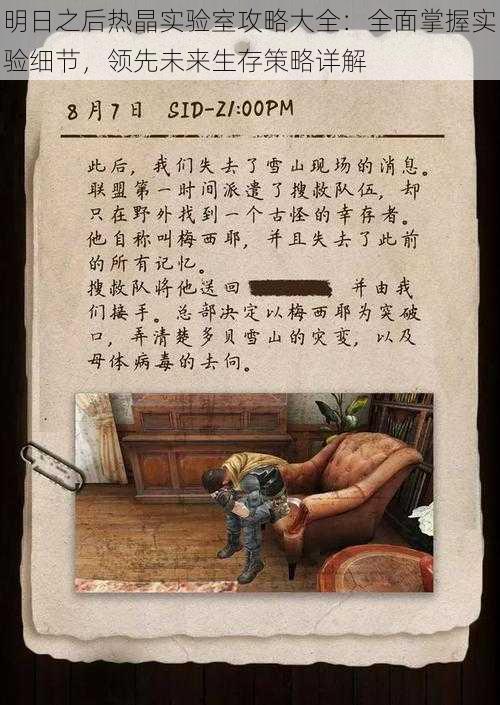 明日之后热晶实验室攻略大全：全面掌握实
验细节，领先未来生存策略详解
8月7日 SID-21:00PM
此后，我们失去了雪山现场的消息。
联盟第一时间派遣了搜救队伍，却
只在野外找到一个古怪的幸存者。
他自称叫梅西耶，并且失去了此前
的所有记忆。
搜救队将他送回 并由我
们接手。总部决定以梅西耶为突破
口，弄清楚多贝雪山的灾变，以及
母体病毒的去向。